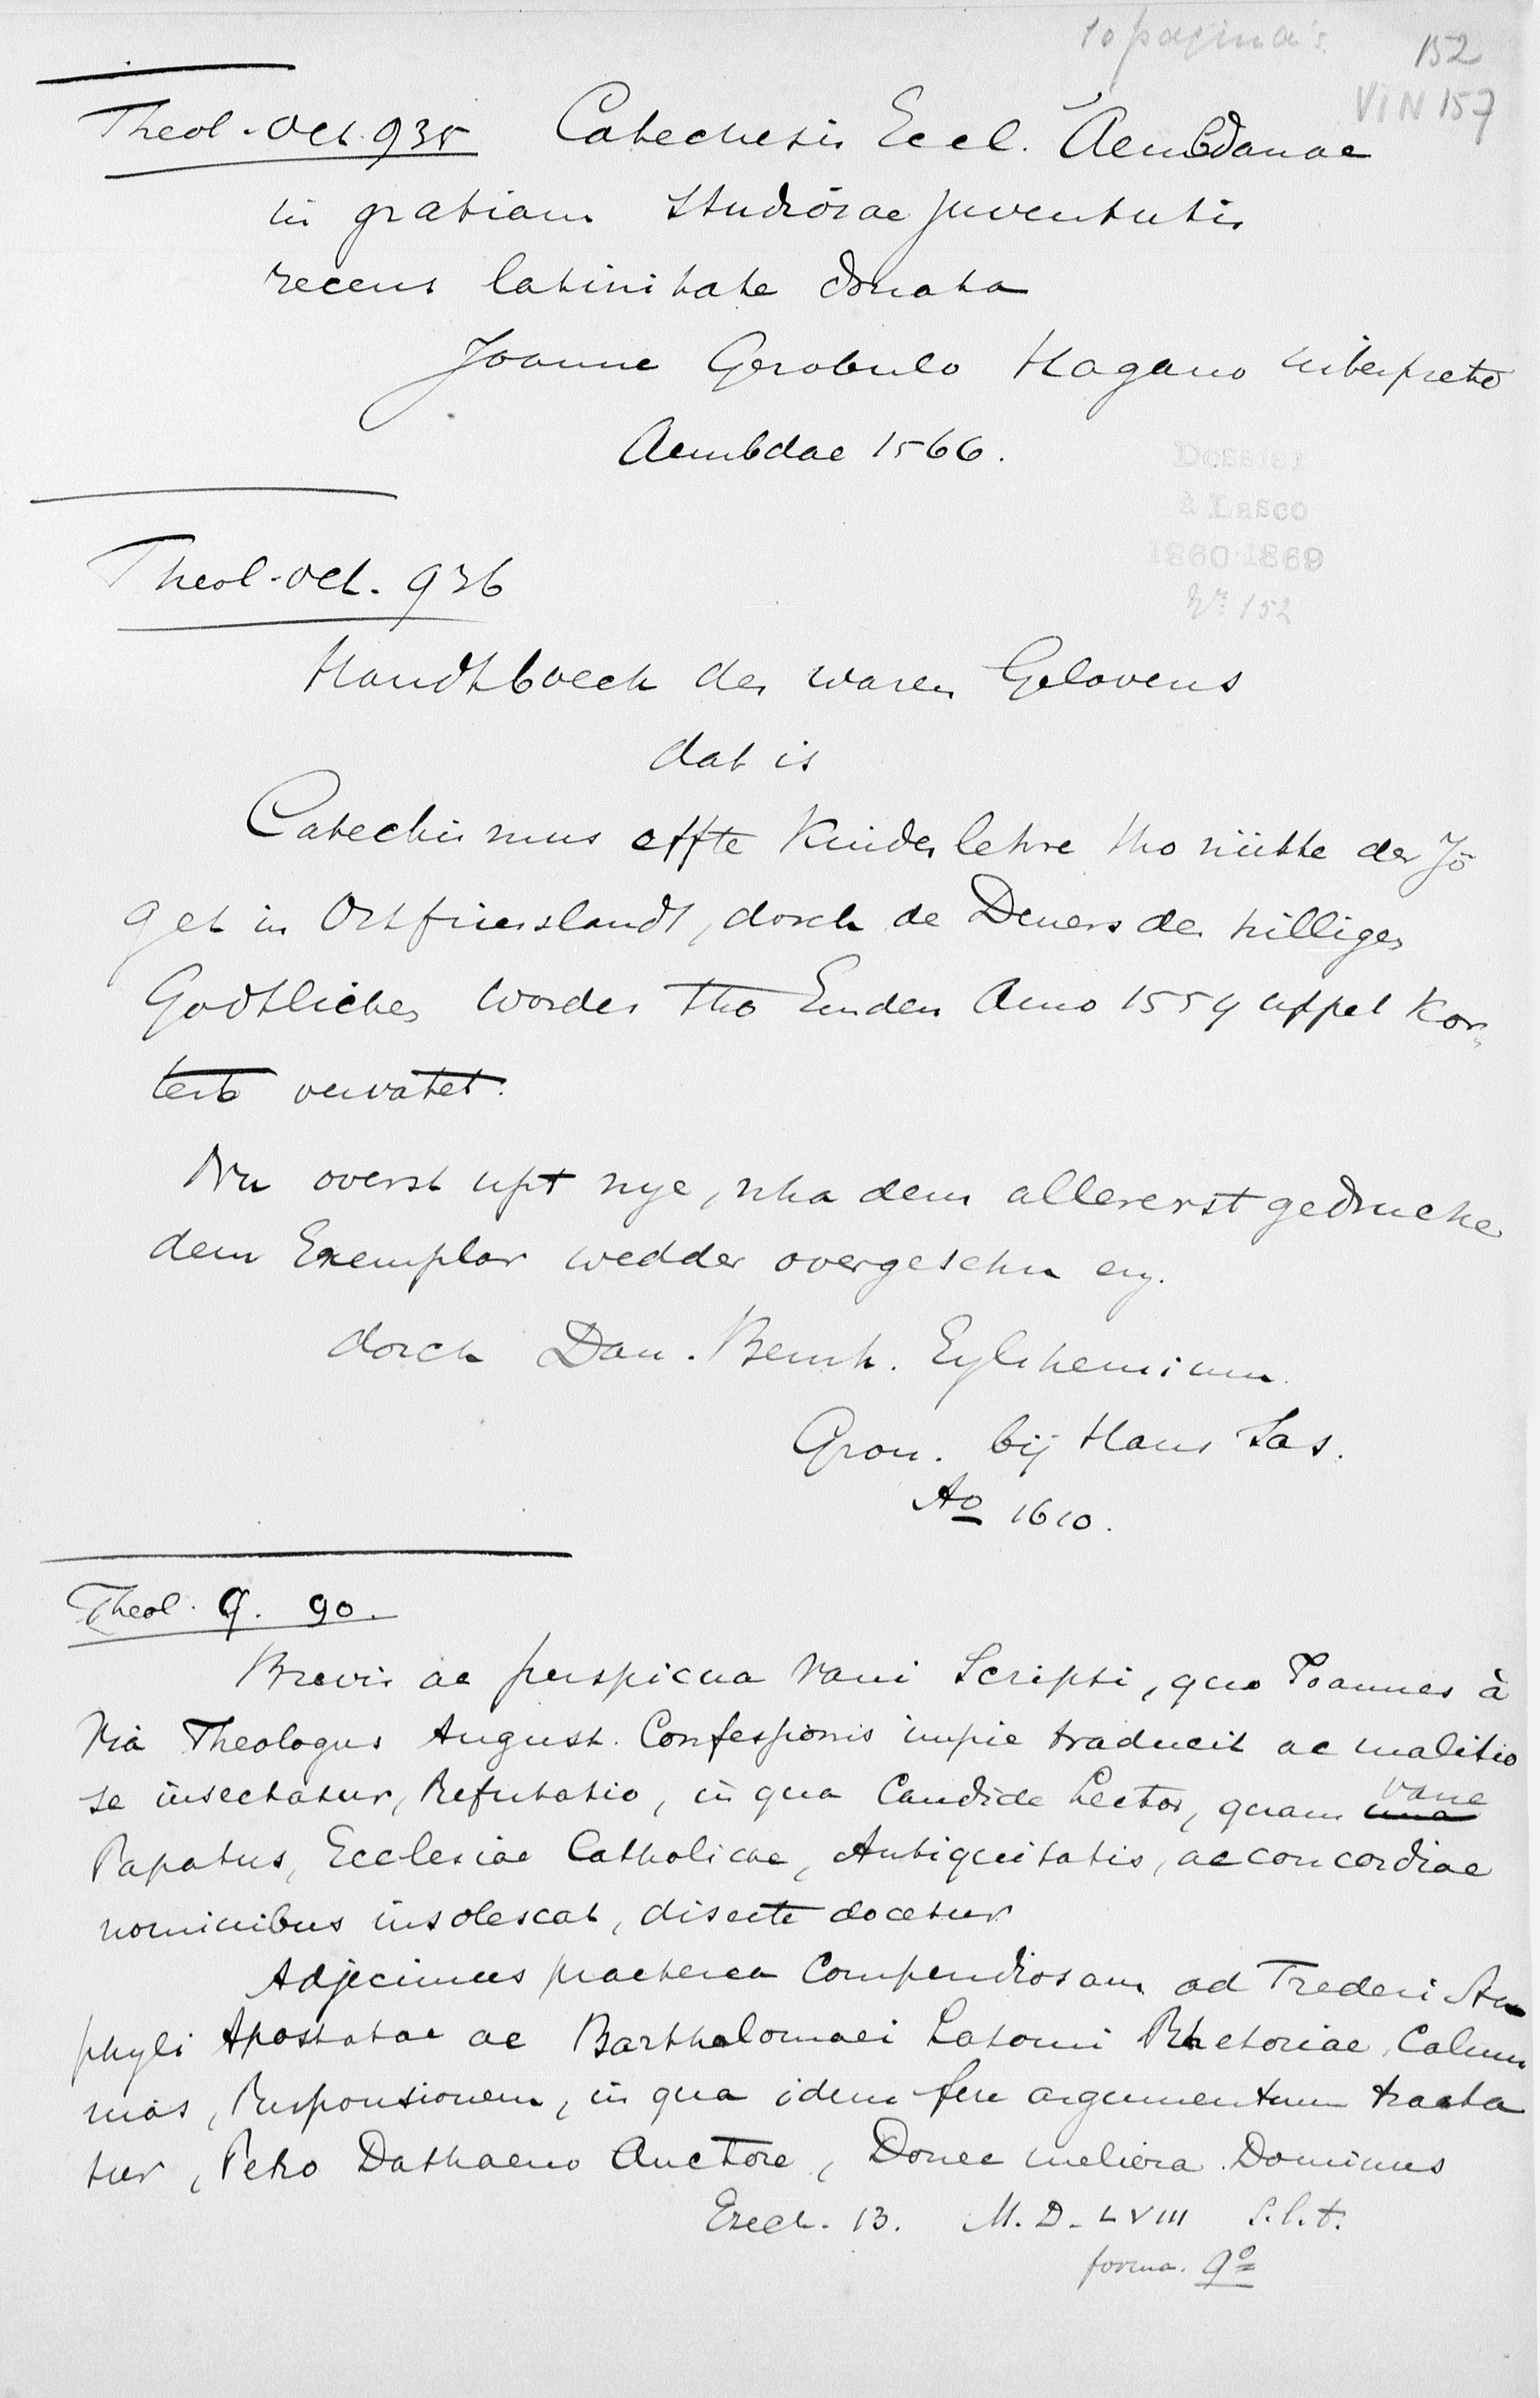 10 pagina's
152
VIN 157
Theol. Oct. 935 Catechesis Eccl. Aembdanae
in gratiam studiosae juventutis
recens latinitate donata
Joanne Gerobulo Hagano interprete
Aembdae 1566.
Dossier
à Lasco
1860-1869
Nr 152
Theol. Oct. 936
Handtboeck des waren Gelovens
dat is
Catechismus effte Kinderlehre tho nütte der Jö
get in Ostfrieslandt, dorch de Deners des hilligen
Godtliches Wordes tho Emden Anno 1554 uppet Kor-
teste vervatet.
Nu overst upt nye, nha dem allererst gedrucke
dem Exemplar wedder overgesehn en.
dorch Dan. Bernh. Eylshemium.
Gron. bij Hans Sas.
Ao 1610.
Theol. Q. 90.
Brevis ac perspicua Vani Scripti, quo Joannes à
Via Theologus August. Confessionis impie traducit ac malitio
se insectatur, Refutatio, in qua Candide Lector, quam vane
Papatus, Ecclesiae Catholicae, Antiquitatis, ac concordiae
nominibus insolescat, diserte docetur
Adjecimus praeterea Compendiosam ad Frederi Sta
phyli Apostatae ac Bartholomaei Latomi Rhetoriae, Calum
nias, Responsionem, in qua idem fere argumentum tracta
tur, Petro Dathaeno Auctore, Donec meliora Dominus
Ezech. 13. M.D.LVIII S.l.t.
forma. Qo